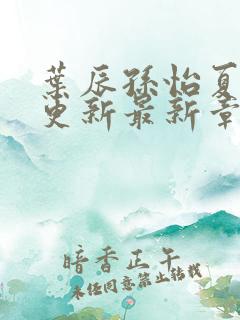 葉辰孫怡夏
更新最新章
暗香正午
未经同意禁止转载